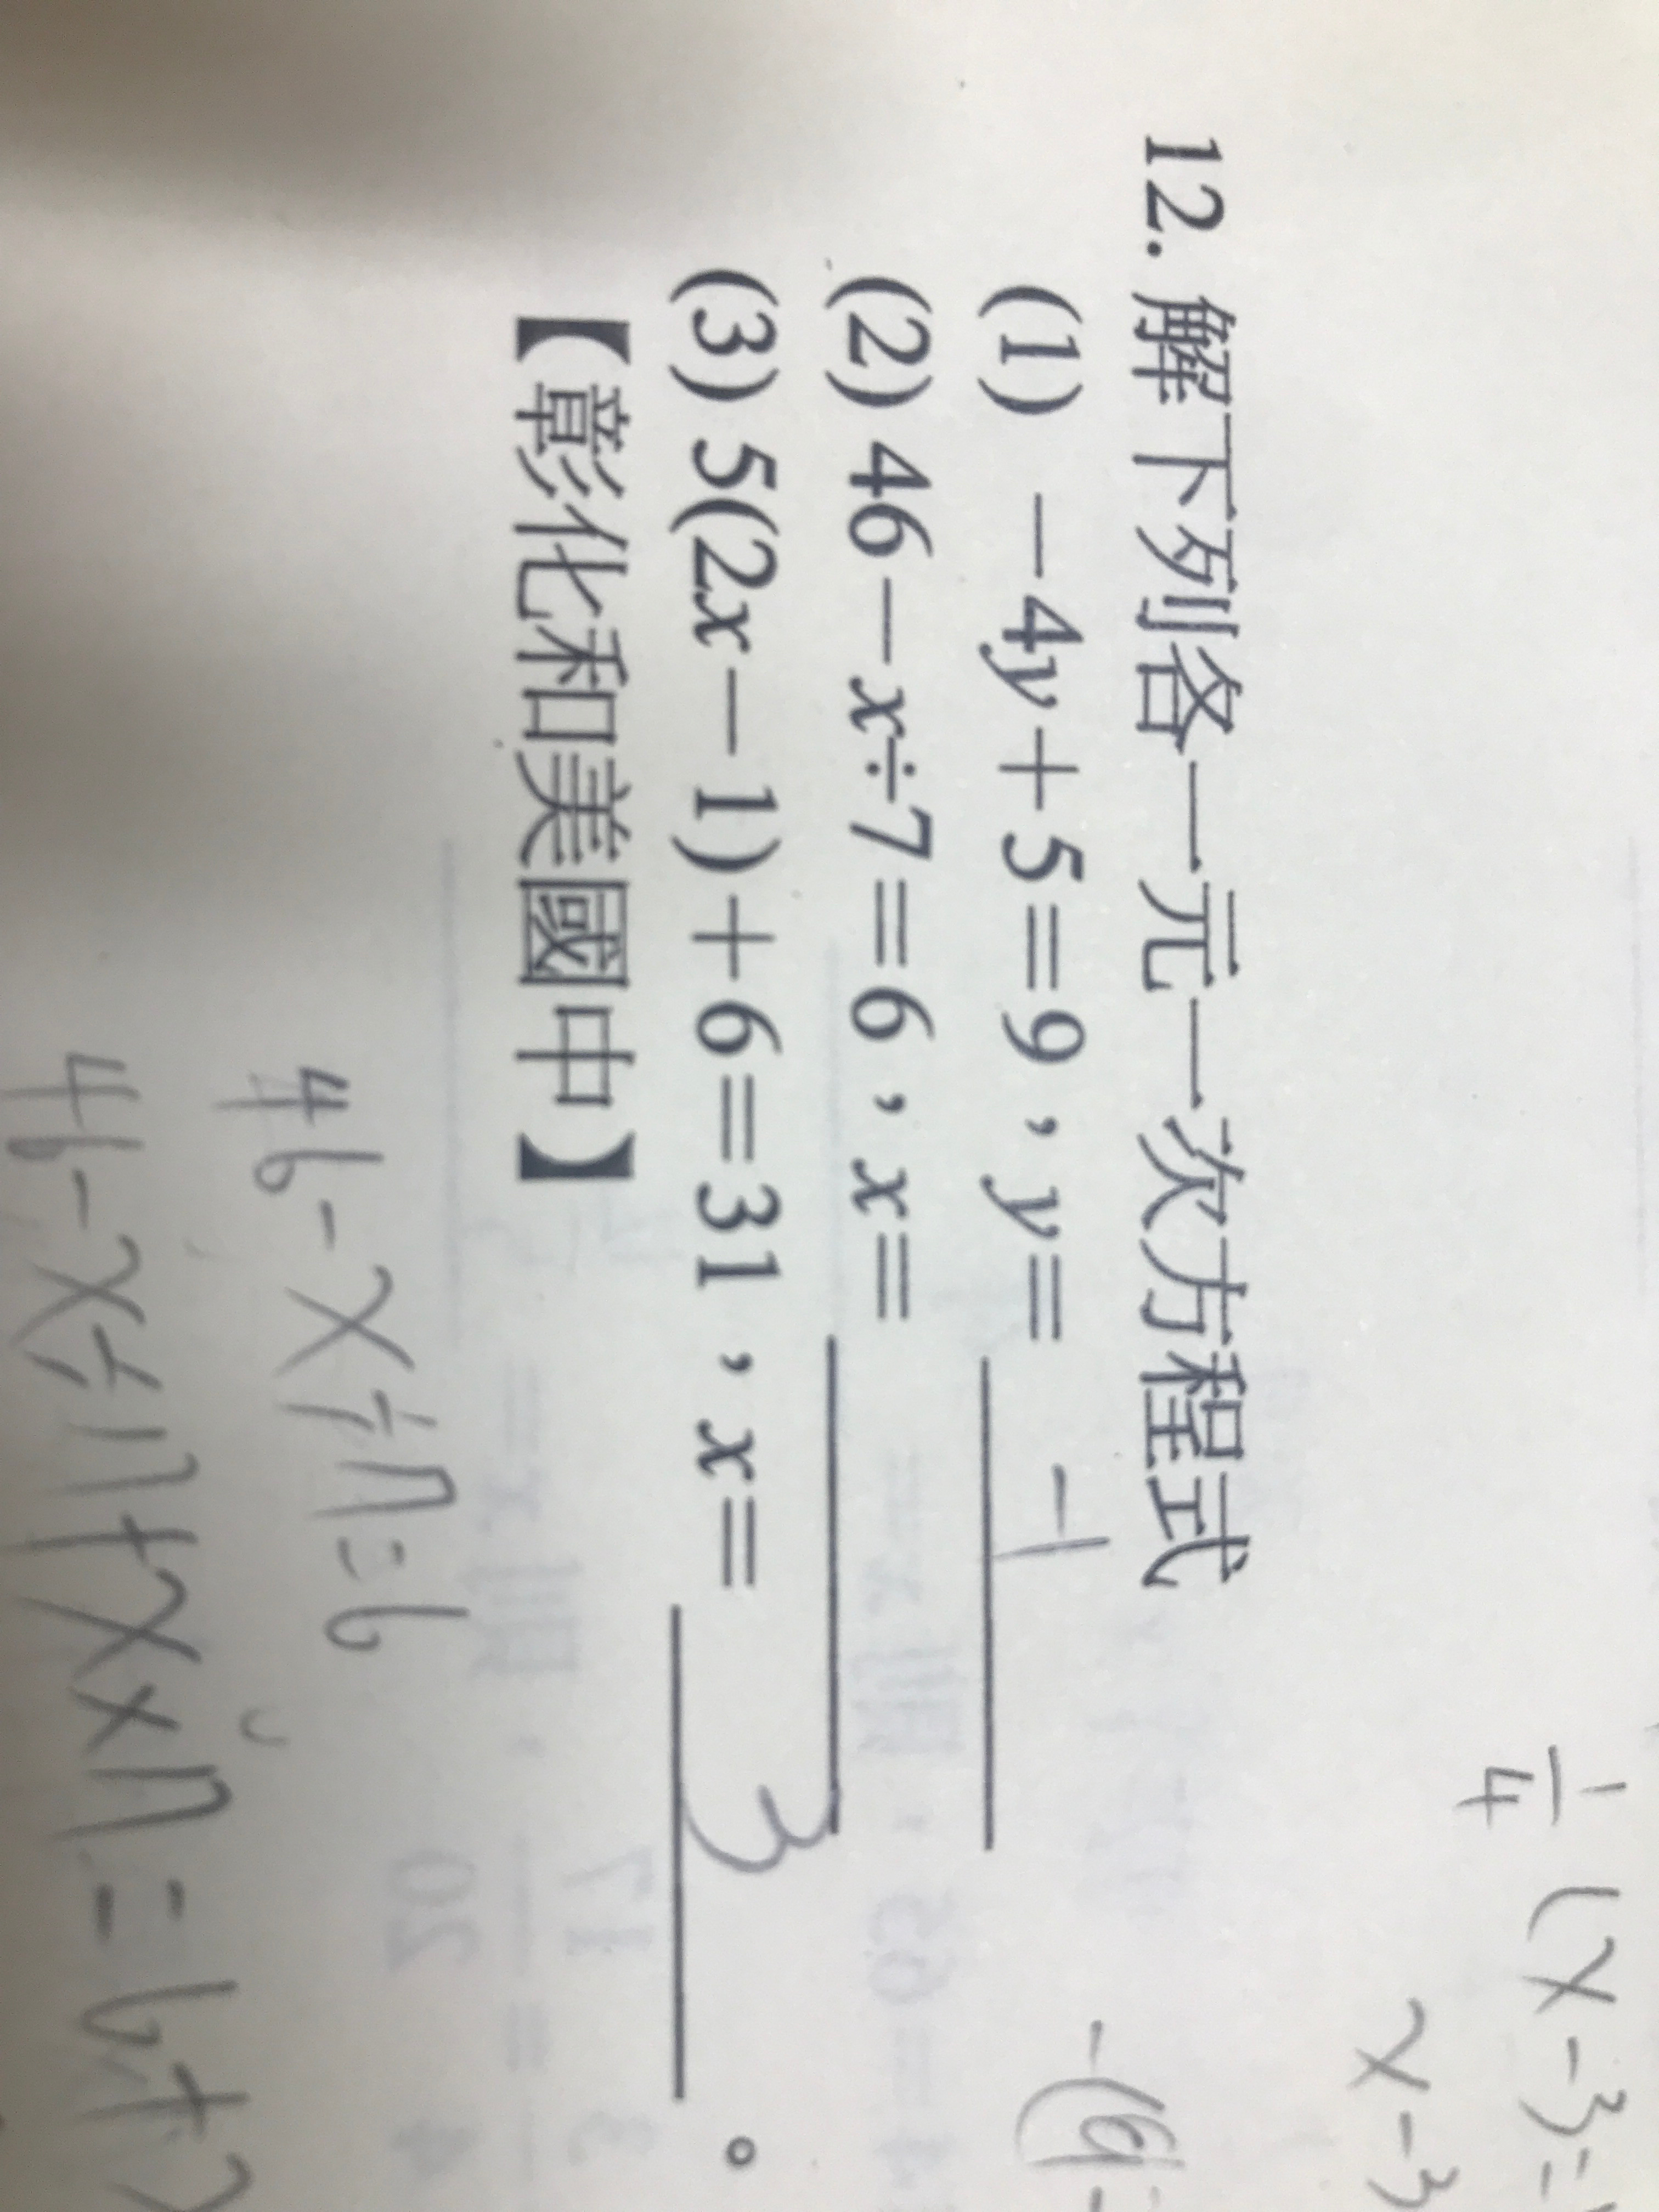 12. 解下列各一元一次方程式
(1) －4y＋5＝9，y＝ -1
(2) 46－x÷7＝6，x＝
(3) 5(2x－1)＋6＝31，x＝ 3 。
【彰化和美國中】
1/4 (x-3=
x-3
46-x÷7=6